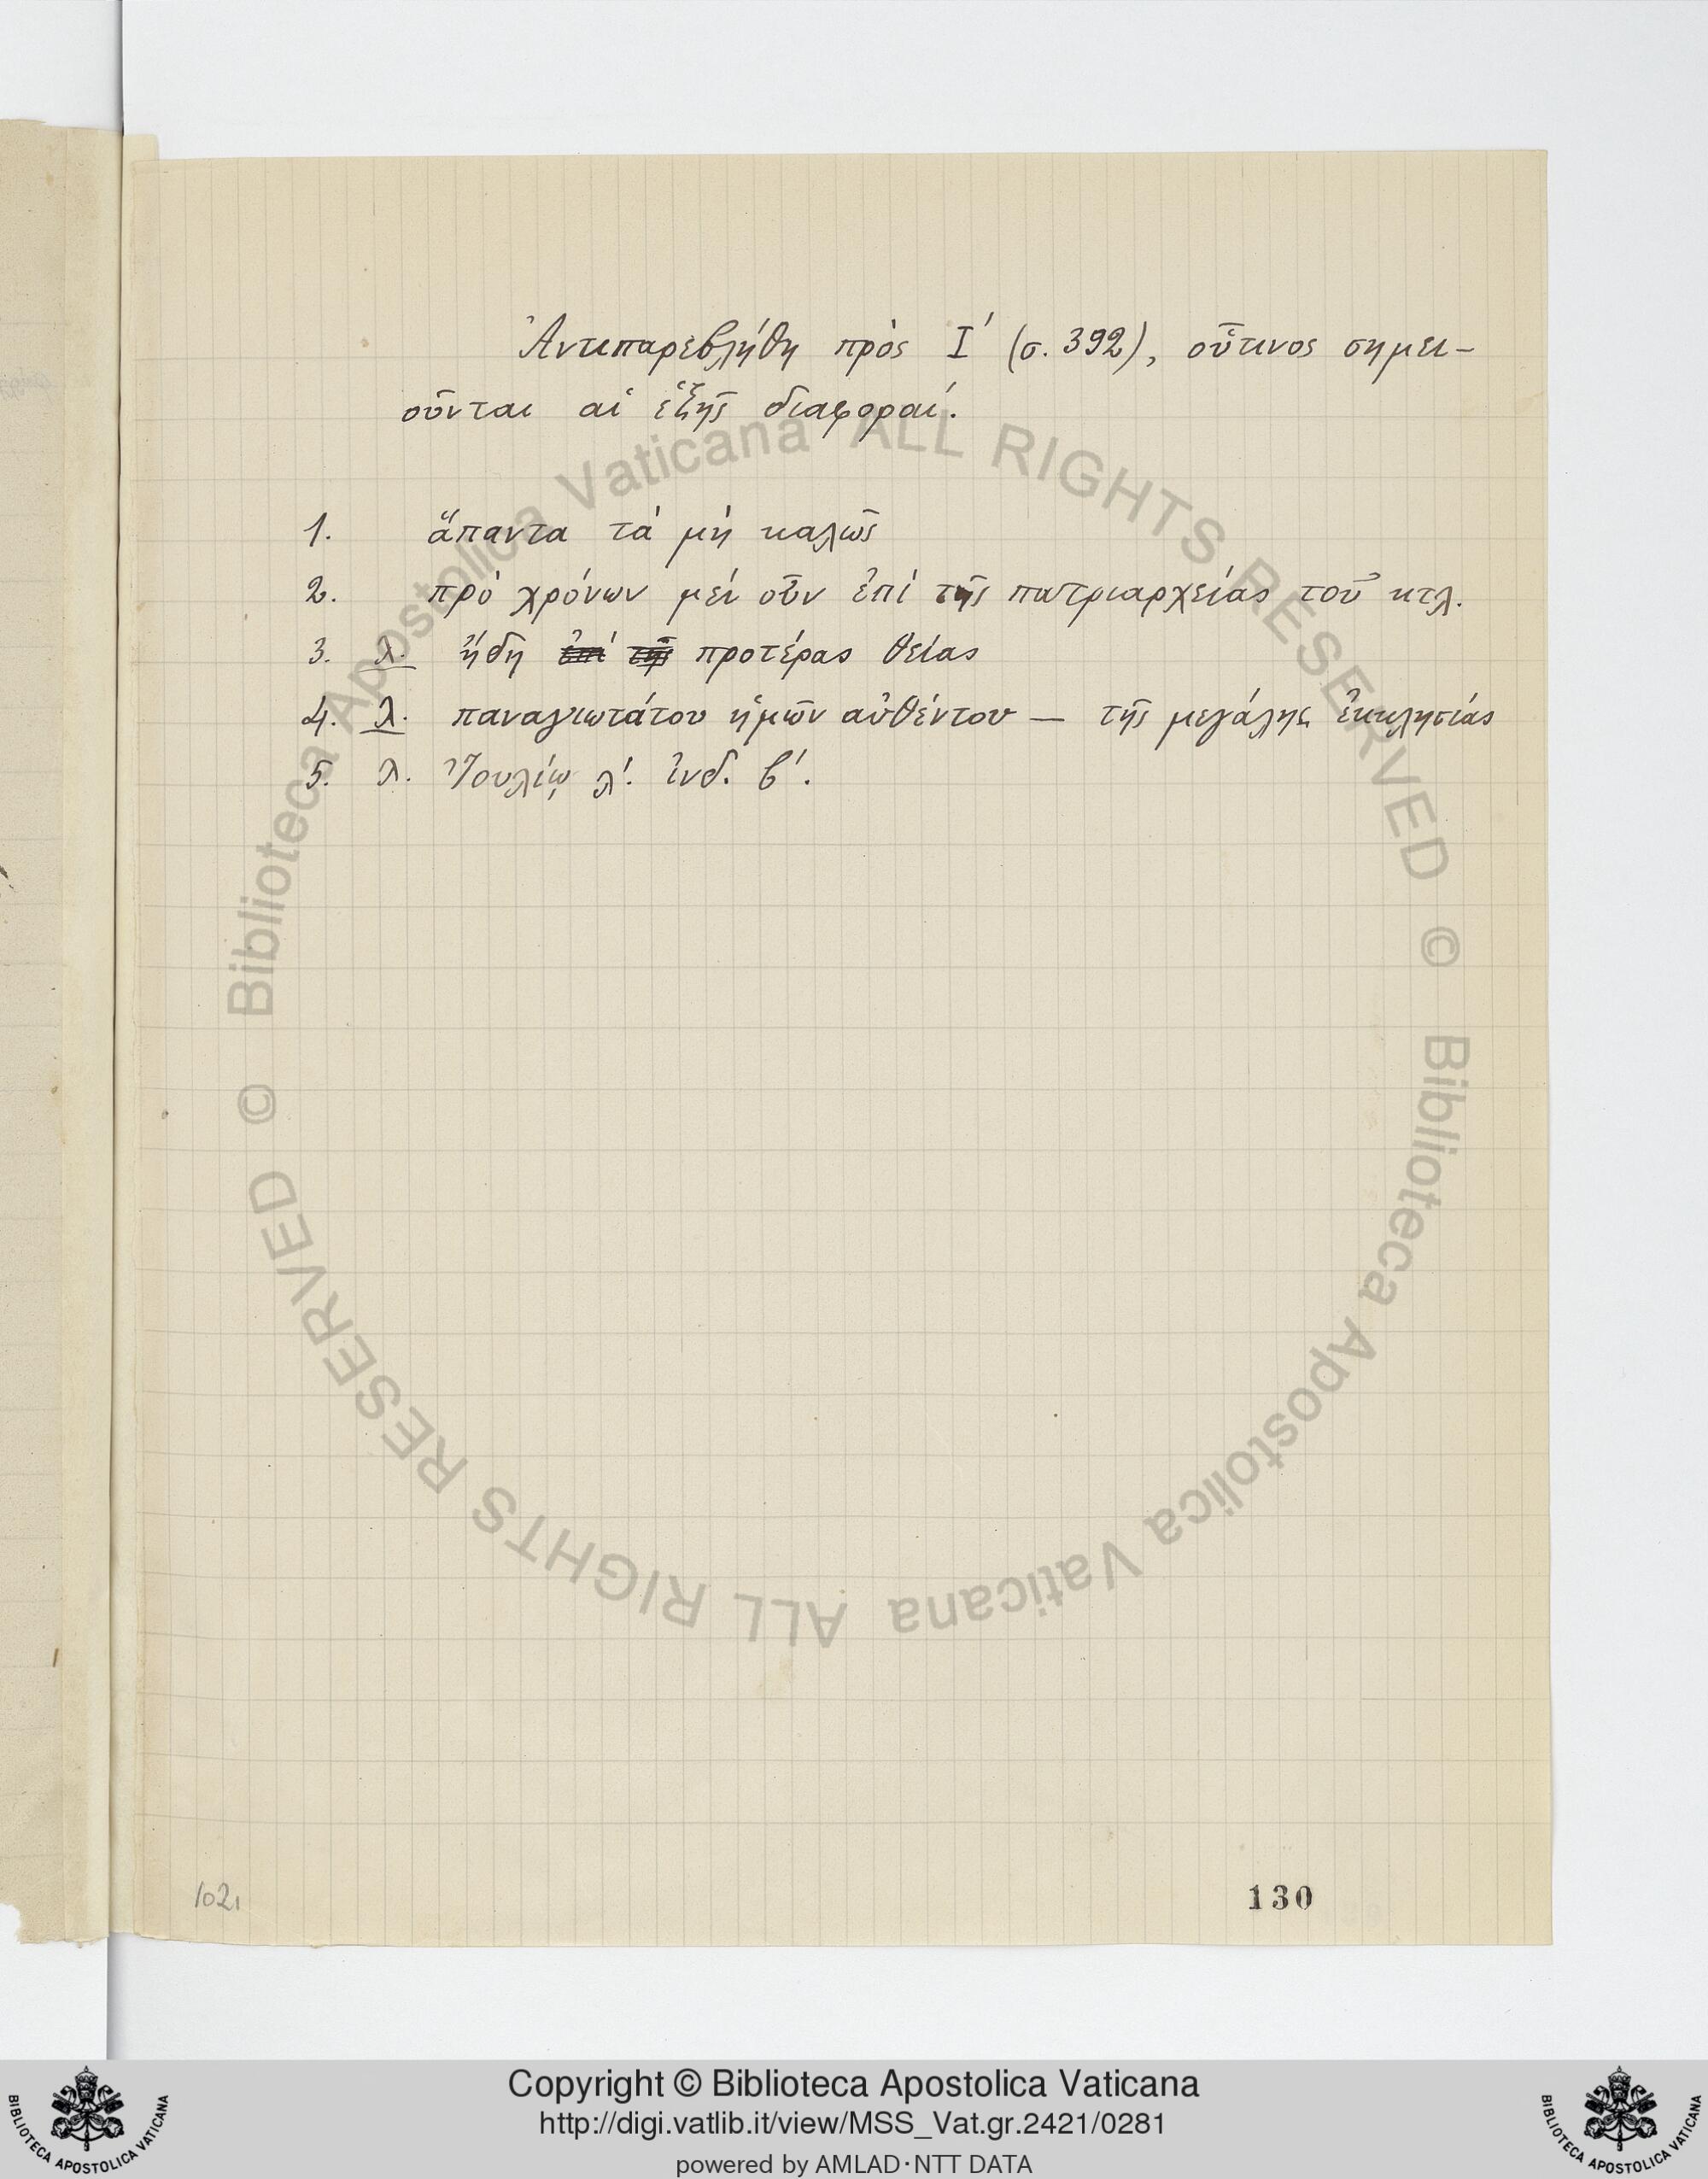 Ἀντιπαρεβλήθη πρὸς Ι΄ (σ. 392), οὗτινος σημει-
οῦνται αἱ ἑξῆς διαφοραί.
1. ἅπαντα τὰ μὴ καλῶς
2. πρὸ χρόνων μὲν οὖν ἐπὶ τῆς πατριαρχείας τοῦ κτλ.
3. λ. ἤδη ἐπὶ τῆς προτέρας θείας
4. λ. παναγιωτάτου ἡμῶν αὐθέντου — τῆς μεγάλης ἐκκλησίας
5. λ. Ἰουλίῳ λ΄. ἰνδ. β΄.
102,
130
© Biblioteca Apostolica Vaticana ALL RIGHTS RESERVED
© Biblioteca Apostolica Vaticana ALL RIGHTS RESERVED
BIBLIOTECA APOSTOLICA VATICANA
Copyright © Biblioteca Apostolica Vaticana
http://digi.vatlib.it/view/MSS_Vat.gr.2421/0281
powered by AMLAD·NTT DATA
BIBLIOTECA APOSTOLICA VATICANA